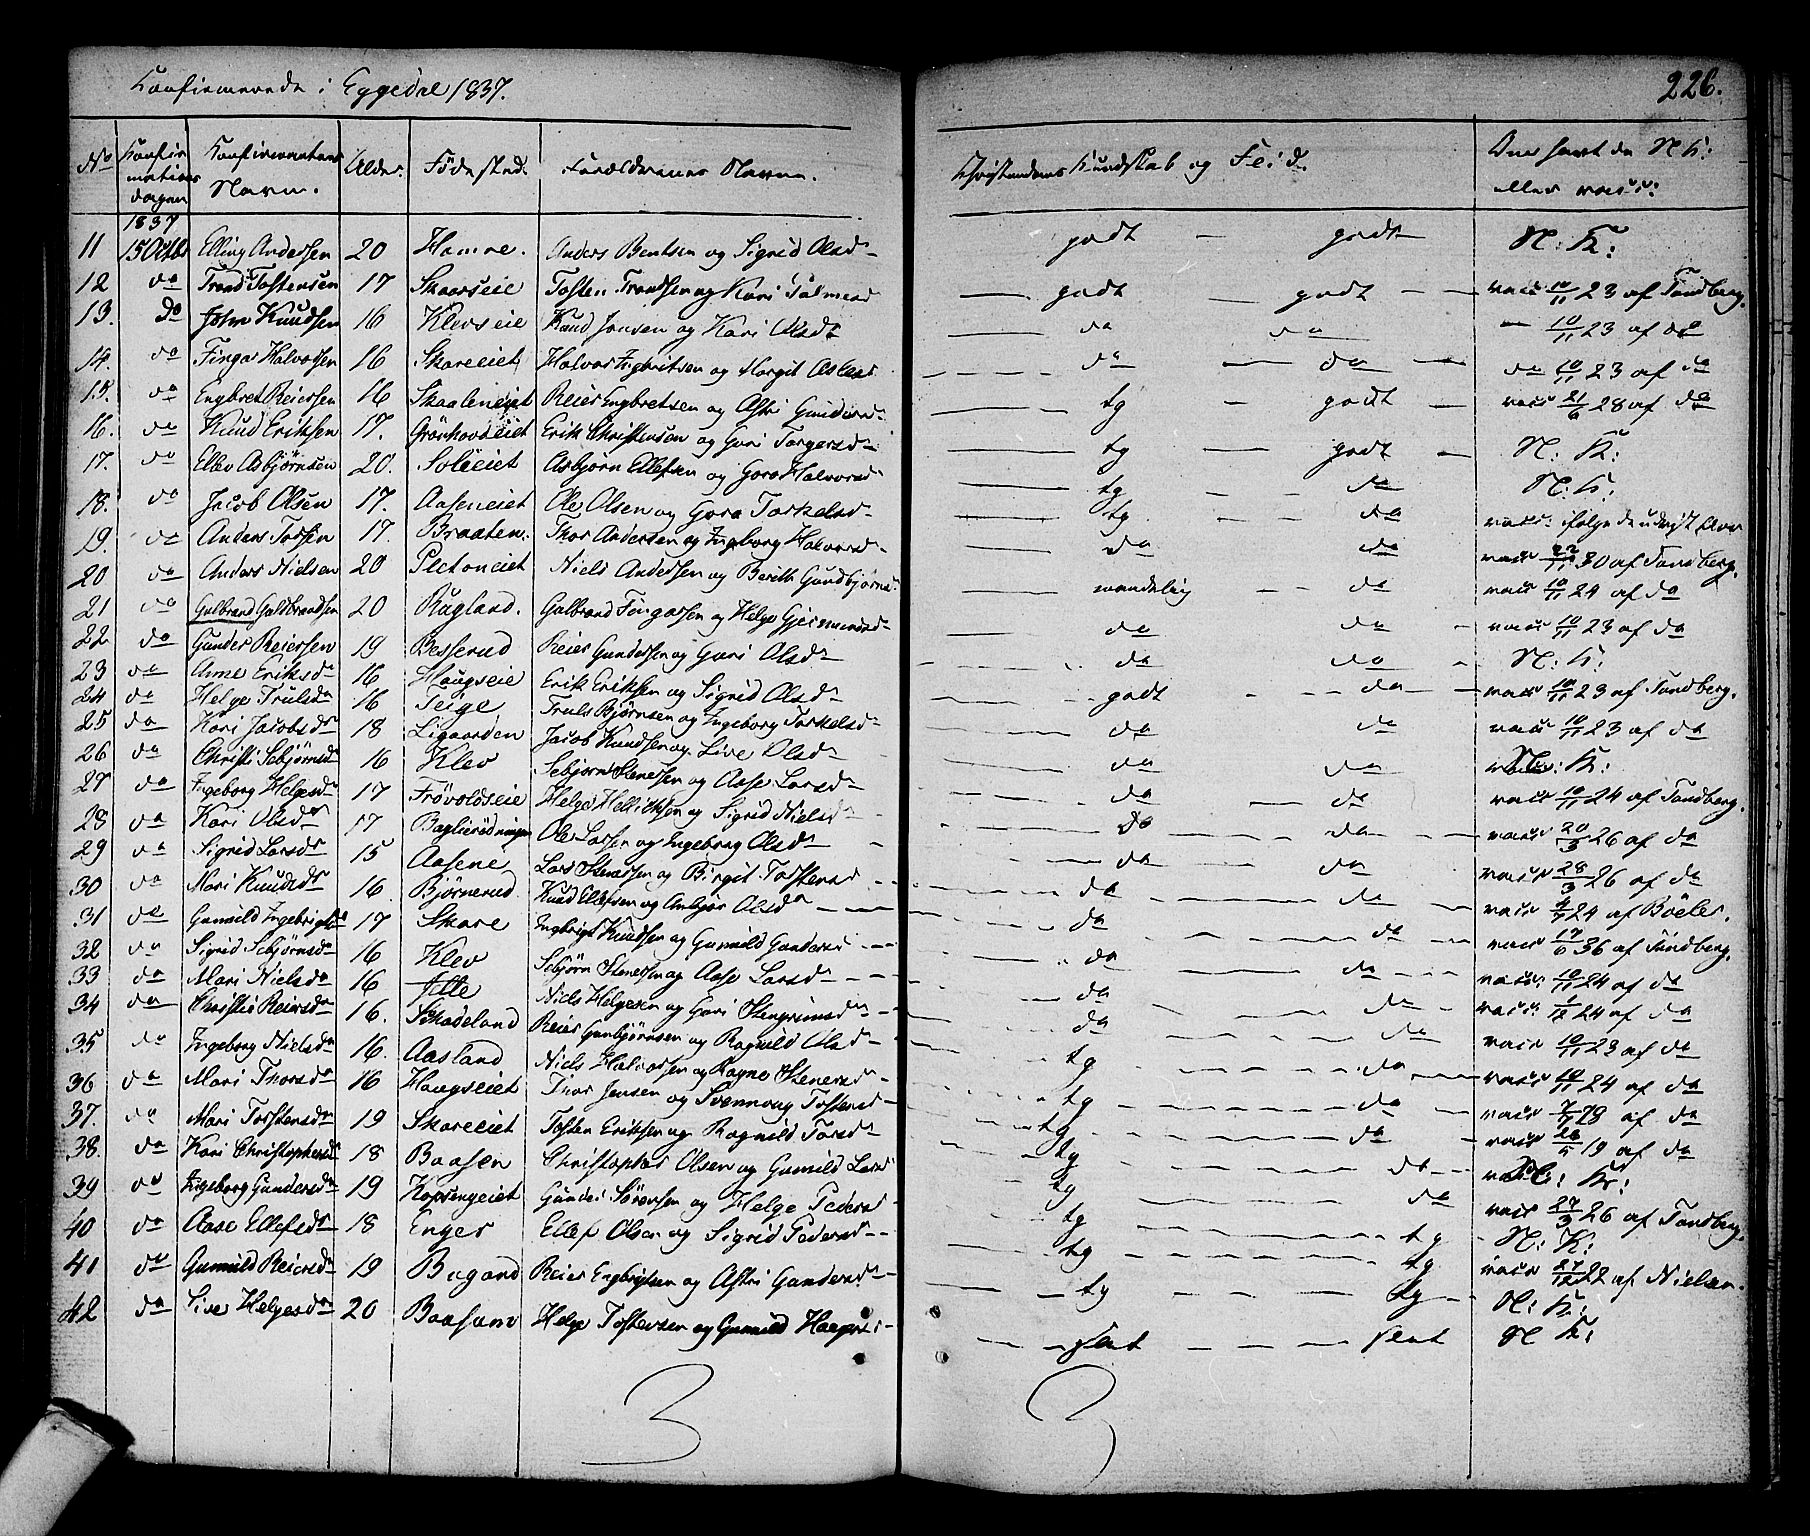 Confirmerede i Eggedal 1837.
226.
No Confirmations dagen Confirmantens Navn. Alder. Födested. Forældrenes Navne. Christendoms Kundskab og Flid. Om havt de N. K: eller vacc:
1837
11 15 Octbr Elling Andersen 20 Hamre. Anders Bentsen og Sigrid Olsdr godt godt N: K:
12 do Trond Tostensen 17 Skaarseie Tosten Trondsen og Kari godt godt vacc 10/11 23 af Tandberg.
13. do John Knudsen 16 Klevseie Knud Jonsen og Kari Olsdr do do 10/11 23 af do
14. do Fingar Halvorsen 16 Skareeiet Halvor Ingbritsen og Margit do do do 10/11 23 af do
15. do Engbret Reiersen 16 Skaaleneiet Reier Engbretsen og Astri Gundersd tg godt vacc 21/6 28 af do
16. do Knud Eriksen 17. Grönhovdeiet Erik Christensen og Guri Torgersd tg godt N: K:
17. do Ellev Asbjörnsen 20. Soleeiet Asbjörn Ellefsen og Gora Halvorsd tg do N: K:
18. do Jacob Olsen 17. Aaseneiet Ole Olsen og Gora Torkelsd tg do vacc: ifölge
19. do Anders Torsen 17. Braaten. Thor Andersen og Ingeborg Halvorsd do do vacc 22/11 30 af Tandberg.
20 do Anders Nielsen 20 Niels Andersen og Berith Gundbjörns. maadelig do vacc 10/11 24 af do
21 do Gulbrand Guldbrandsen 20 Rugland. Gulbrand Fingarsen og Helge Gjermundsd do do vacc 10/11 23 af do
22 do Gunder Reiersen 19 Besserud Reier Gundersen og Guri Olsdr do do N: K:
23 do Anne Eriksdr 16 Haugseie Erik Eriksen og Sigrid Olsdr godt do vacc 10/11 23 af Tandberg.
24 do Helge Trulsdr 16 Teige Truls Björnsen og Ingeborg Torkelsd do do vacc 10/11 23 af do
25 do Kari Jacobsdr 18 Ligaarden Jacob Knudsen og Live Olsdr do do N: K:
26 do Christi Sebjörnsdr 16 Klev Sebjörn Stenersen og Aase Larsdr do do vacc 10/11 24 af Tandberg.
27 do Ingeborg Helgesdr 17 Frövoldseie Helge Hellicksen og Sigrid Nielsd do do vacc 20/3 26 af do
28 do Kari Olsdr 17 Ole Larsen og Ingeborg Olsdr do do vacc 28/3 26 af do
29 do Sigrid Larsdr 15 Aasene Lars Stenersen og Birgit Torstensd do do vacc 24 af Böeler.
30 do Mari Knudsdr 16 Björnerud Knud Ellefsen og Anbjör Olsdr do do vacc 17/6 36 af Tandberg.
31 do Gunnild Ingebrigtsdr 17 Skare Ingbrigt Knudsen og Gunnild Gundersd do do vacc 10/11 24 af do
32 do Sigrid Sebjörnsdr 16 Klev Sebjörn Stenersen og Aase Larsdr do do vacc: 24 af do
33 do Mari Nielsdr 16 Niels Helgesen og Guri Stengrimsdr do do vacc 10/11 23 af do
34 do Christie Reiersdr 16. Skadeland Reier Gunbjörnsen og Ragnild Olsdr tg do vacc 10/11 24 af do
35 do Ingeborg Nielsdr 16. Aasland Niels Halvorsen og Ragne Stenersd tg do vacc af do
36 do Mari Thorsdr 16 Haugseiet Thor Jensen og Svennoug Tostensd tg do vacc 26/5 19 af do
37. do Mari Torstensdr 19 Skareeiet Tosten Eriksen og Ragnild Torsdr tg do N: K:
38. do Kari Christophersdr 18 Baasen Christopher Olsen og Gunnild Larsd tg do vacc 27/3 26 af Tandberg.
39 do Ingeborg Gundersdr 19 Kopsengeiet Gunder Sörensen og Helge Pedersd tg tg N: K:
40 do Aase Ellefsdr 18 Enger Ellef Olsen og Sigrid Pedersd tg tg vacc 27/12 22 af Nielsen.
41 do Gunnild Reiersdr 19 Reier Engbrigtsen og Astri Gundersd tg tg N: K:
42 do Live Helgesdr 20 Helge Tostensen og Gunnild slet slet N K:
3
3